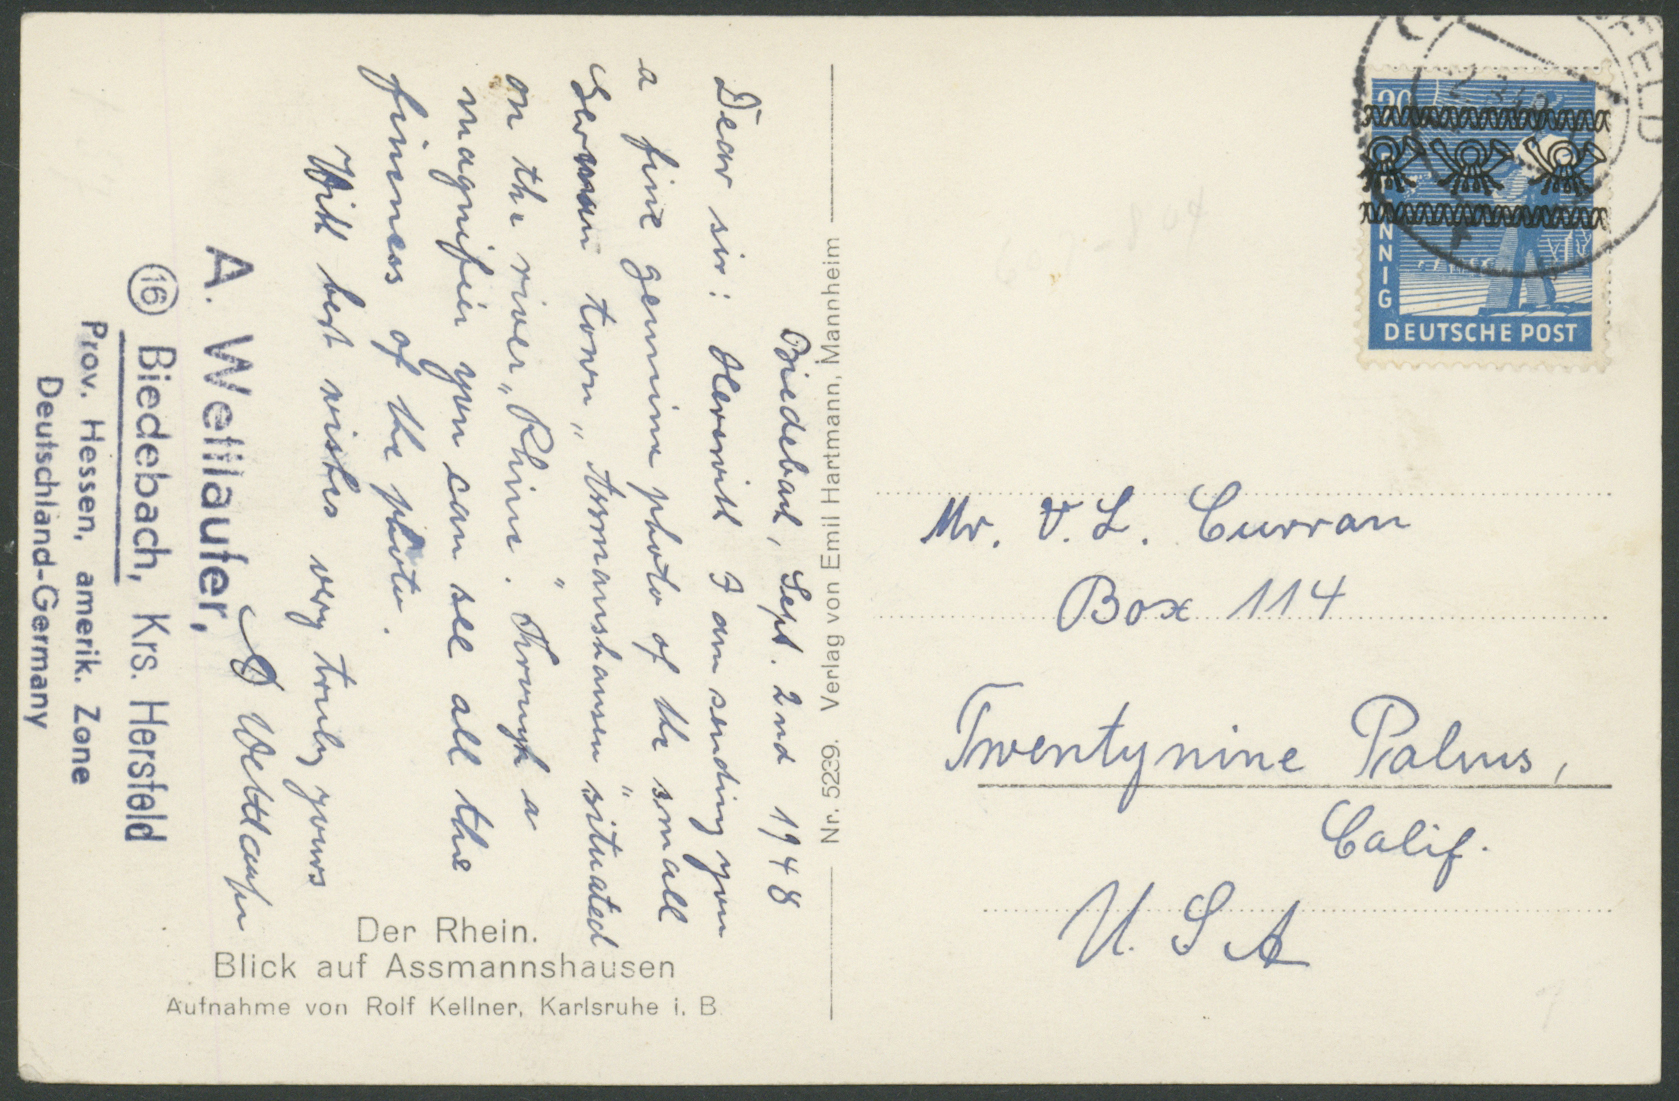 Biedebach, Sept. 2nd 1948
Dear sir! Herewith I am sending you
a fine genuine photo of the small
German town „Assmanshausen" situated
on the river „Rhine". Through a
magnifier you can see all the
finness of the photo.
With best wishes very truly yours
A Wettlaufer
A. Wettlaufer,
16 Biedebach, Krs. Hersfeld
Prov. Hessen, amerik. Zone
Deutschland-Germany
Der Rhein.
Blick auf Assmannshausen
Aufnahme von Rolf Kellner, Karlsruhe i. B.
Nr. 5239. Verlag von Emil Hartmann, Mannheim
20
PFENNIG
DEUTSCHE POST
Mr. V. L. Curran
Box 114
Twentynine Palms,
Calif.
U. S A